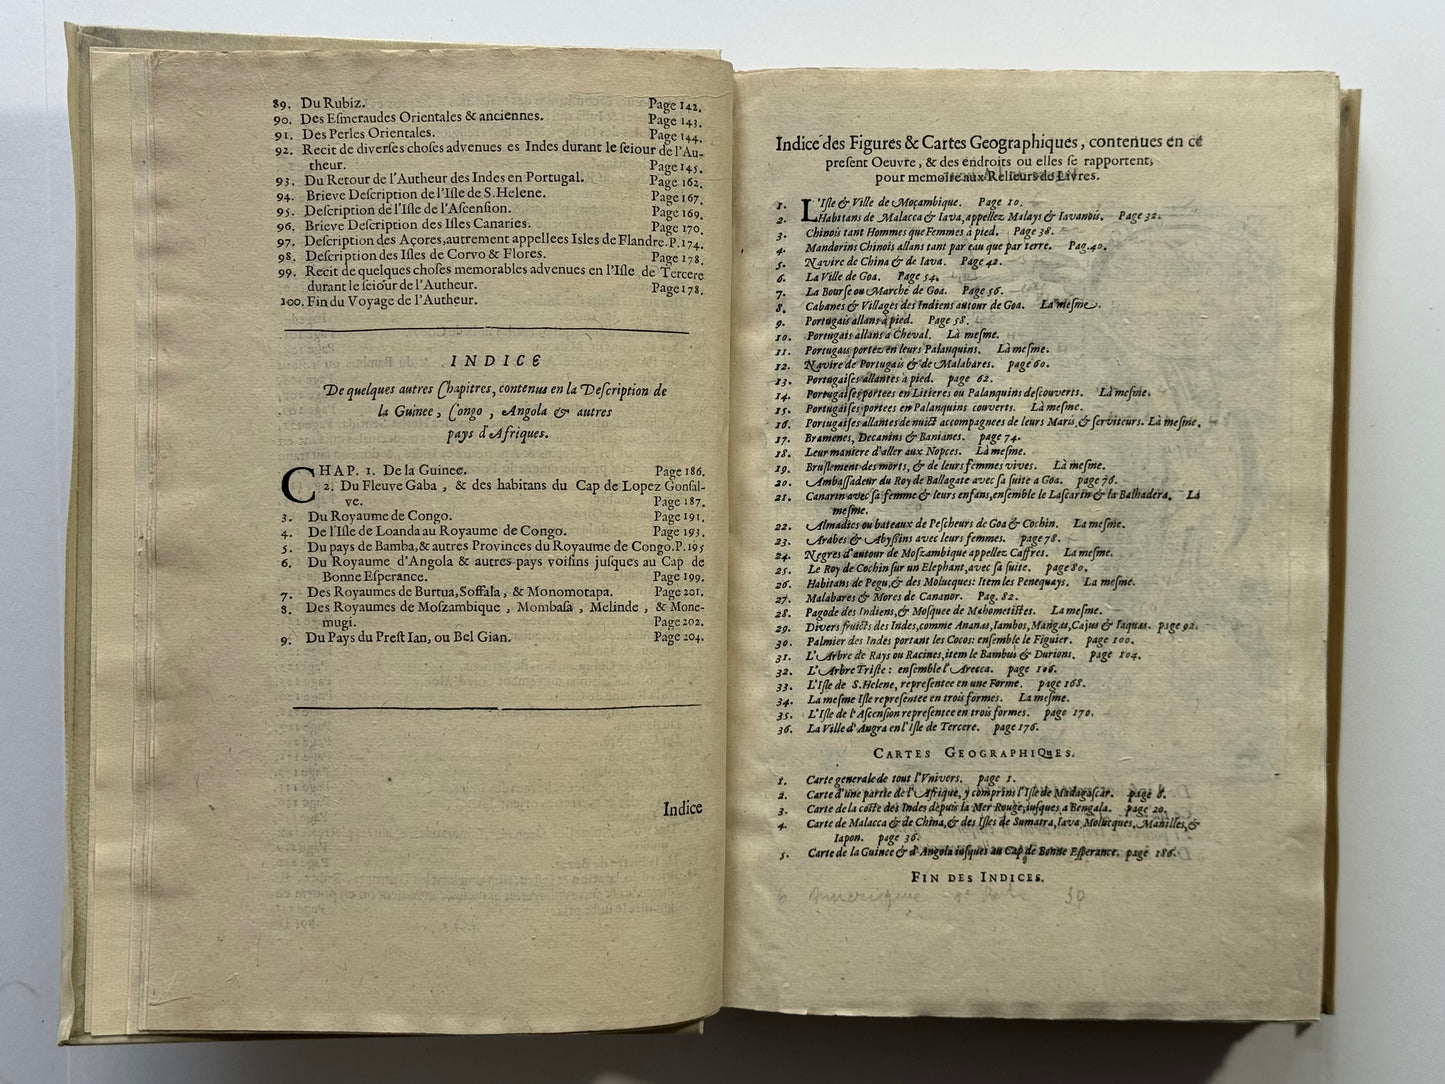 89. Du Rubiz. Page 142.
90. Des Eſmeraudes Orientales & anciennes. Page 143.
91. Des Perles Orientales. Page 144.
92. Recit de diverſes choſes advenues es Indes durant le ſeiour de l'Au-
theur. Page 145.
93. Du Retour de l'Autheur des Indes en Portugal. Page 162.
94. Brieve Deſcription de l'Iſle de S. Helene. Page 167.
95. Deſcription de l'Iſle de l'Aſcenſion. Page 169.
96. Brieve Deſcription des Iſles Canaries. Page 170.
97. Deſcription des Açores, autrement appellees Isles de Flandre. P. 174.
98. Deſcription des Iſles de Corvo & Flores. Page 178.
99. Recit de quelques choſes memorables advenues en l'Iſle de Tercere
durant le ſeiour de l'Autheur. Page 178.
100. Fin du Voyage de l'Autheur.
INDICE
De quelques autres Chapitres, contenus en la Deſcription de
la Guinee, Congo, Angola & autres
pays d'Afriques.
CHAP. 1. De la Guinee. Page 186.
2. Du Fleuve Gaba, & des habitans du Cap de Lopez Gonſal-
ve. Page 187.
3. Du Royaume de Congo. Page 191.
4. De l'Iſle de Loanda au Royaume de Congo. Page 193.
5. Du pays de Bamba, & autres Provinces du Royaume de Congo. P. 195
6. Du Royaume d'Angola & autres pays voiſins juſques au Cap de
Bonne Eſperance. Page 199.
7. Des Royaumes de Burtua, Soffala, & Monomotapa. Page 201.
8. Des Royaumes de Moſzambique, Mombaſa, Melinde, & Mone-
mugi. Page 202.
9. Du Pays du Preſt Ian, ou Bel Gian. Page 204.
Indice
Indice des Figures & Cartes Geographiques, contenues en cé
preſent Oeuvre, & des endroits ou elles ſe rapportent,
pour memoire aux Relieurs de Livres.
1. L'Iſle & Ville de Moçambique. Page 10.
2. Habitans de Malacca & Iava, appellez Malays & Iavanois. Page 32.
3. Chinois tant Hommes que Femmes à pied. Page 38.
4. Mandorins Chinois allans tant par eau que par terre. Pag. 40.
5. Navire de China & de Iava. Page 42.
6. La Ville de Goa. Page 54.
7. La Bourſe ou Marché de Goa. Page 56.
8. Cabanes & Villages des Indiens autour de Goa. La meſme.
9. Portugais allans à pied. Page 58.
10. Portugais allans à Cheval. Là meſme.
11. Portugais portez en leurs Palanquins. Là meſme.
12. Navire de Portugais & de Malabares. page 60.
13. Portugaiſes allantes à pied. page 62.
14. Portugaiſes portees en Litieres ou Palanquins deſcouverts. Là meſme.
15. Portugaiſes portees en Palanquins couverts. Là meſme.
16. Portugaiſes allantes de nuict accompagnees de leurs Maris, & ſerviteurs. Là meſme.
17. Bramenes, Decanins & Banianes. page 74.
18. Leur maniere d'aller aux Nopces. Là meſme.
19. Bruſlement des morts, & de leurs femmes vives. Là meſme.
20. Ambaſſadeur du Roy de Ballagate avec ſa ſuite a Goa. page 76.
21. Canarin avec ſa femme & leurs enfans, enſemble le Laſcarin & la Balhadera. Là
meſme.
22. Almadies ou bateaux de Peſcheurs de Goa & Cochin. La meſme.
23. Arabes & Abyßins avec leurs femmes. page 78.
24. Negres d'autour de Moſzambique appellez Caffres. La meſme.
25. Le Roy de Cochin ſur un Elephant, avec ſa ſuite. page 80.
26. Habitans de Pegu, & des Molucques: Item les Penequays. La meſme.
27. Malabares & Mores de Cananor. Pag. 82.
28. Pagode des Indiens, & Mosquee de Mahometiſtes. La meſme.
29. Divers fruicts des Indes, comme Ananas, Iambos, Mangas, Cajus & Iaquas. page 92.
30. Palmier des Indes portant les Cocos: enſemble le Figuier. page 100.
31. L'Arbre de Rays ou Racines, item le Bambus & Durions. page 104.
32. L'Arbre Triſte: enſemble l'Arecca. page 106.
33. L'Iſle de S. Helene, repreſentee en une Forme. page 168.
34. La meſme Iſle repreſentee en trois formes. La meſme.
35. L'Iſle de l'Aſcenſion repreſentee en trois formes. page 170.
36. La Ville d'Angra en l'iſle de Tercere. page 176.
CARTES GEOGRAPHIQUES.
1. Carte generale de tout l'Vnivers. page 1.
2. Carte d'une partie de l'Afrique, y comprins l'Iſle de Madagaſcar. page 8.
3. Carte de la coſte des Indes depuis la Mer Rouge, iuſques a Bengala. page 20.
4. Carte de Malacca & de China, & des Iſles de Sumatra, Iava, Molucques, Manilles, &
Iapon. page 36.
5. Carte de la Guinee & d'Angola iuſques au Cap de Bonne Eſperance. page 186.
FIN DES INDICES.